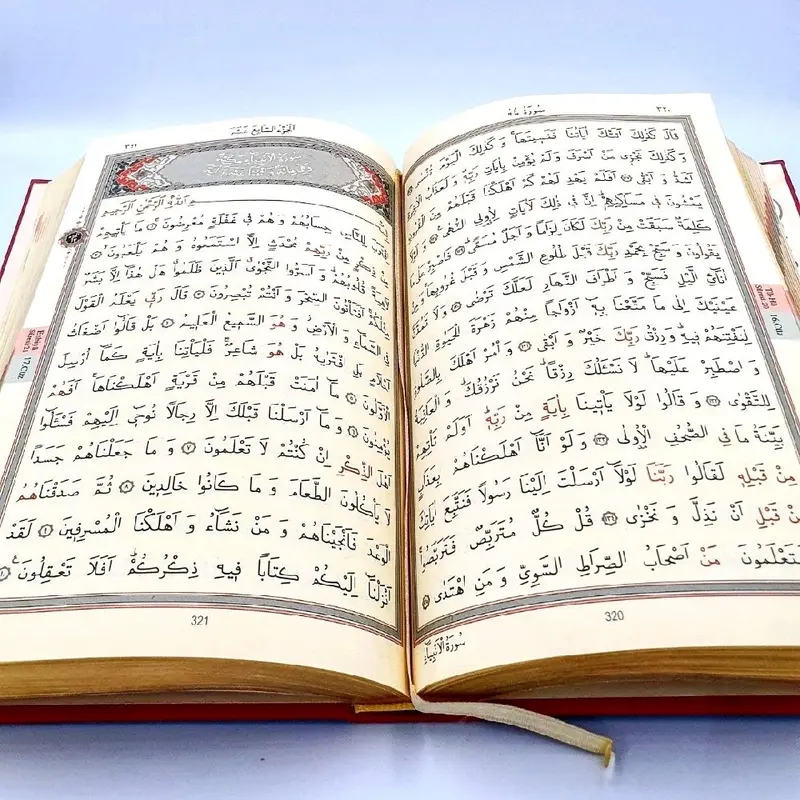 سُورَةُ طٰهٰ ٣٢٠
قَالَ كَذٰلِكَ اَتَتْكَ اٰيَاتُنَا فَنَسِيتَهَاۚ وَكَذٰلِكَ الْيَوْمَ تُنْسٰى
وَكَذٰلِكَ نَجْزِي مَنْ اَسْرَفَ وَلَمْ يُؤْمِنْ بِاٰيَاتِ رَبِّهِۜ وَلَعَذَابُ الْاٰخِرَةِ
اَشَدُّ وَاَبْقٰى ١٢٧ اَفَلَمْ يَهْدِ لَهُمْ كَمْ اَهْلَكْنَا قَبْلَهُمْ مِنَ الْقُرُونِ
يَمْشُونَ فِي مَسَاكِنِهِمْۜ اِنَّ فِي ذٰلِكَ لَاٰيَاتٍ لِاُولِي النُّهٰى ١٢٨ وَلَوْلَا
كَلِمَةٌ سَبَقَتْ مِنْ رَبِّكَ لَكَانَ لِزَامًا وَاَجَلٌ مُسَمًّىۜ ١٢٩ فَاصْبِرْ عَلٰى مَا
يَقُولُونَ وَسَبِّحْ بِحَمْدِ رَبِّكَ قَبْلَ طُلُوعِ الشَّمْسِ وَقَبْلَ غُرُوبِهَاۚ وَمِنْ
اٰنَائِ الَّيْلِ فَسَبِّحْ وَاَطْرَافَ النَّهَارِ لَعَلَّكَ تَرْضٰى ١٣٠ وَلَا تَمُدَّنَّ
عَيْنَيْكَ اِلٰى مَا مَتَّعْنَا بِهِ اَزْوَاجًا مِنْهُمْ زَهْرَةَ الْحَيٰوةِ الدُّنْيَا
لِنَفْتِنَهُمْ فِيهِۜ وَرِزْقُ رَبِّكَ خَيْرٌ وَاَبْقٰى ١٣١ وَأْمُرْ اَهْلَكَ بِالصَّلٰوةِ
وَاصْطَبِرْ عَلَيْهَاۜ لَا نَسْـَٔلُكَ رِزْقًاۜ نَحْنُ نَرْزُقُكَۜ وَالْعَاقِبَةُ
لِلتَّقْوٰى ١٣٢ وَقَالُوا لَوْلَا يَأْتِينَا بِاٰيَةٍ مِنْ رَبِّهِۜ اَوَلَمْ تَأْتِهِمْ
بَيِّنَةُ مَا فِي الصُّحُفِ الْاُولٰى ١٣٣ وَلَوْ اَنَّا اَهْلَكْنَاهُمْ بِعَذَابٍ
مِنْ قَبْلِهِ لَقَالُوا رَبَّنَا لَوْلَا اَرْسَلْتَ اِلَيْنَا رَسُولًا فَنَتَّبِعَ اٰيَاتِكَ
مِنْ قَبْلِ اَنْ نَذِلَّ وَنَخْزٰى ١٣٤ قُلْ كُلٌّ مُتَرَبِّصٌ فَتَرَبَّصُواۚ
فَسَتَعْلَمُونَ مَنْ اَصْحَابُ الصِّرَاطِ السَّوِيِّ وَمَنِ اهْتَدٰى ١٣٥
320
سُورَةُ الْاَنْبِيَاءِ
Tâ-Hâ
Sûresi 20
16/Cüz
اَلْجُزْءُ السَّابِعَ عَشَرَ ٣٢١
سُورَةُ الْاَنْبِيَاءِ مَكِّيَّةٌ
وَهِيَ مِائَةٌ وَاثْنَتَا عَشْرَةَ اٰيَةً
بِسْمِ اللّٰهِ الرَّحْمٰنِ الرَّحِيمِ
اِقْتَرَبَ لِلنَّاسِ حِسَابُهُمْ وَهُمْ فِي غَفْلَةٍ مُعْرِضُونَۚ ١ مَا يَأْتِيهِمْ
مِنْ ذِكْرٍ مِنْ رَبِّهِمْ مُحْدَثٍ اِلَّا اسْتَمَعُوهُ وَهُمْ يَلْعَبُونَۙ ٢
لَاهِيَةً قُلُوبُهُمْۜ وَاَسَرُّوا النَّجْوٰىۗ اَلَّذِينَ ظَلَمُوا هَلْ هٰذَا اِلَّا بَشَرٌ
مِثْلُكُمْۚ اَفَتَأْتُونَ السِّحْرَ وَاَنْتُمْ تُبْصِرُونَ ٣ قَالَ رَبِّي يَعْلَمُ الْقَوْلَ
فِي السَّمَاءِ وَالْاَرْضِۘ وَهُوَ السَّمِيعُ الْعَلِيمُ ٤ بَلْ قَالُوا اَضْغَاثُ
اَحْلَامٍ بَلِ افْتَرٰيهُ بَلْ هُوَ شَاعِرٌۚ فَلْيَأْتِنَا بِاٰيَةٍ كَمَا اُرْسِلَ
الْاَوَّلُونَ ٥ مَا اٰمَنَتْ قَبْلَهُمْ مِنْ قَرْيَةٍ اَهْلَكْنَاهَاۚ اَفَهُمْ
يُؤْمِنُونَ ٦ وَمَا اَرْسَلْنَا قَبْلَكَ اِلَّا رِجَالًا نُوحِي اِلَيْهِمْ فَسْـَٔلُوا
اَهْلَ الذِّكْرِ اِنْ كُنْتُمْ لَا تَعْلَمُونَ ٧ وَمَا جَعَلْنَاهُمْ جَسَدًا
لَا يَأْكُلُونَ الطَّعَامَ وَمَا كَانُوا خَالِدِينَ ٨ ثُمَّ صَدَقْنَاهُمُ
الْوَعْدَ فَاَنْجَيْنَاهُمْ وَمَنْ نَشَاءُ وَاَهْلَكْنَا الْمُسْرِفِينَ ٩ لَقَدْ
اَنْزَلْنَا اِلَيْكُمْ كِتَابًا فِيهِ ذِكْرُكُمْۜ اَفَلَا تَعْقِلُونَ۟ ١٠
321
Enbiyâ
Sûresi 21
17/Cüz